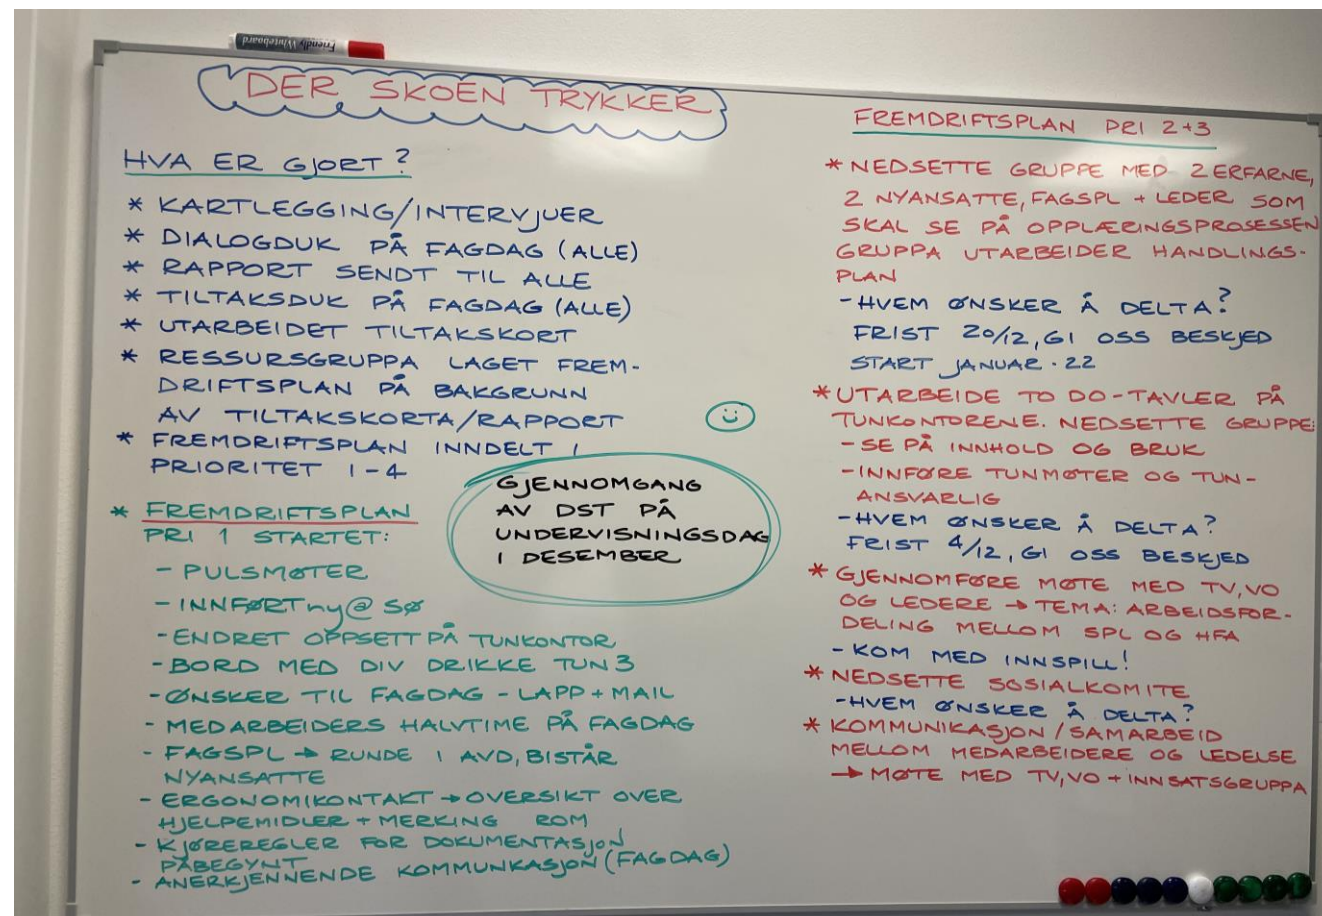 Friendly Whiteboard
DER SKOEN TRYKKER
HVA ER GJORT?
* KARTLEGGING/INTERVJUER
* DIALOGDUK PÅ FAGDAG (ALLE)
* RAPPORT SENDT TIL ALLE
* TILTAKSDUK PÅ FAGDAG (ALLE)
* UTARBEIDET TILTAKSKORT
* RESSURSGRUPPA LAGET FREM-
DRIFTSPLAN PÅ BAKGRUNN
AV TILTAKSKORTA/RAPPORT
* FREMDRIFTSPLAN INNDELT I
PRIORITET 1-4
* FREMDRIFTSPLAN
PRI 1 STARTET:
- PULSMØTER
- INNFØRT ny@ SØ
- ENDRET OPPSETT PÅ TUNKONTOR
- BORD MED DIV DRIKKE TUN 3
- ØNSKER TIL FAGDAG - LAPP + MAIL
- MEDARBEIDERS HALVTIME PÅ FAGDAG
- FAGSPL → RUNDE I AVD, BISTÅR
NYANSATTE
- ERGONOMIKONTAKT → OVERSIKT OVER
HJELPEMIDLER + MERKING ROM
- KJØREREGLER FOR DOKUMENTASJON
PÅBEGYNT
- ANERKJENNENDE KOMMUNKASJON (FAGDAG)
GJENNOMGANG
AV DST PÅ
UNDERVISNINGSDAG
I DESEMBER
FREMDRIFTSPLAN PRI 2+3
* NEDSETTE GRUPPE MED 2 ERFARNE,
2 NYANSATTE, FAGSPL + LEDER SOM
SKAL SE PÅ OPPLÆRINGSPROSESSEN
GRUPPA UTARBEIDER HANDLINGS-
PLAN
- HVEM ØNSKER Å DELTA?
FRIST 20/12, GI OSS BESKJED
START JANUAR · 22
* UTARBEIDE TO DO-TAVLER PÅ
TUNKONTORENE. NEDSETTE GRUPPE:
- SE PÅ INNHOLD OG BRUK
- INNFØRE TUNMØTER OG TUN-
ANSVARLIG
- HVEM ØNSKER Å DELTA?
FRIST 4/12, GI OSS BESKJED
* GJENNOMFØRE MØTE MED TV, VO
OG LEDERE → TEMA: ARBEIDSFOR-
DELING MELLOM SPL OG HFA
- KOM MED INNSPILL!
* NEDSETTE SOSIALKOMITE
- HVEM ØNSKER Å DELTA?
* KOMMUNIKASJON / SAMARBEID
MELLOM MEDARBEIDERE OG LEDELSE
→ MØTE MED TV, VO + INNSATSGRUPPA